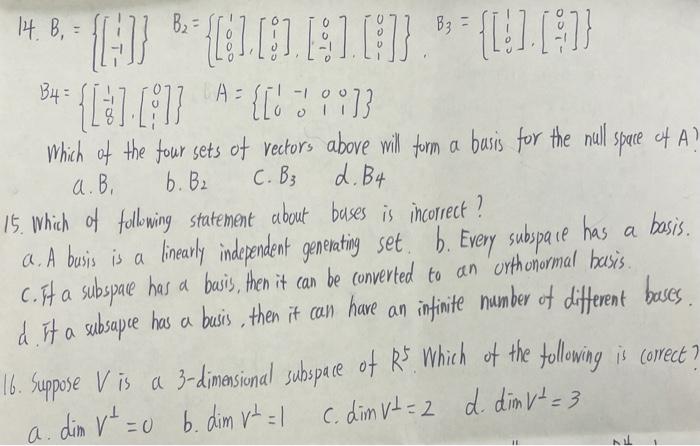 14. B₁ = {[1 1 -1 1]} B₂ = {[1 0 0 0], [0 1 0 0], [0 0 -1 0], [0 0 0 1]}. B₃ = {[1 1 0 0], [0 0 -1 1]}
B4 = {[1 -1 0 0], [0 0 1 1]} A = {[1 -1 0 0 0 0 1 1]}
Which of the four sets of vectors above will form a basis for the null space of A?
a. B₁ b. B₂ C. B₃ d. B4
15. Which of following statement about bases is incorrect?
a. A basis is a linearly independent generating set. b. Every subspace has a basis.
C. If a subspace has a basis, then it can be converted to an orthonormal basis.
d. If a subsapce has a basis, then it can have an infinite number of different bases.
16. Suppose V is a 3-dimensional subspace of R⁵. Which of the following is correct?
a. dim V⊥ = 0 b. dim V⊥ = 1 C. dim V⊥ = 2 d. dim V⊥ = 3